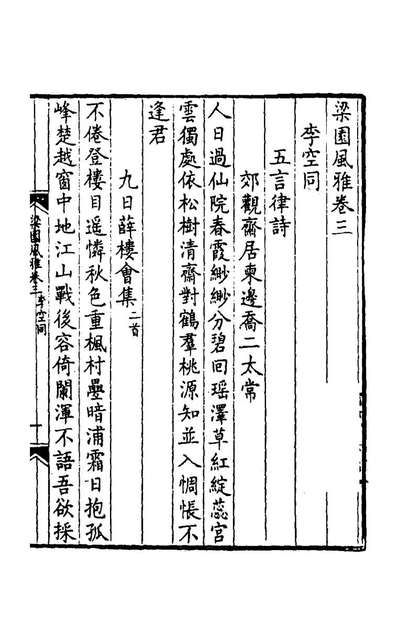 梁園風雅卷三
李空同
五言律詩
郊觀齋居柬邊喬二太常
人日過仙院春霞緲緲分碧回瑶澤草紅綻蕊宮
雲獨處依松樹清齋對鶴羣桃源知並入惆悵不
逢君
九日薛樓會集二首
不倦登樓目遥憐秋色重楓村壘暗浦霜日抱孤
峰楚越窗中地江山戰後容倚闌渾不語吾欲採
梁園風雅卷三 李空同 一